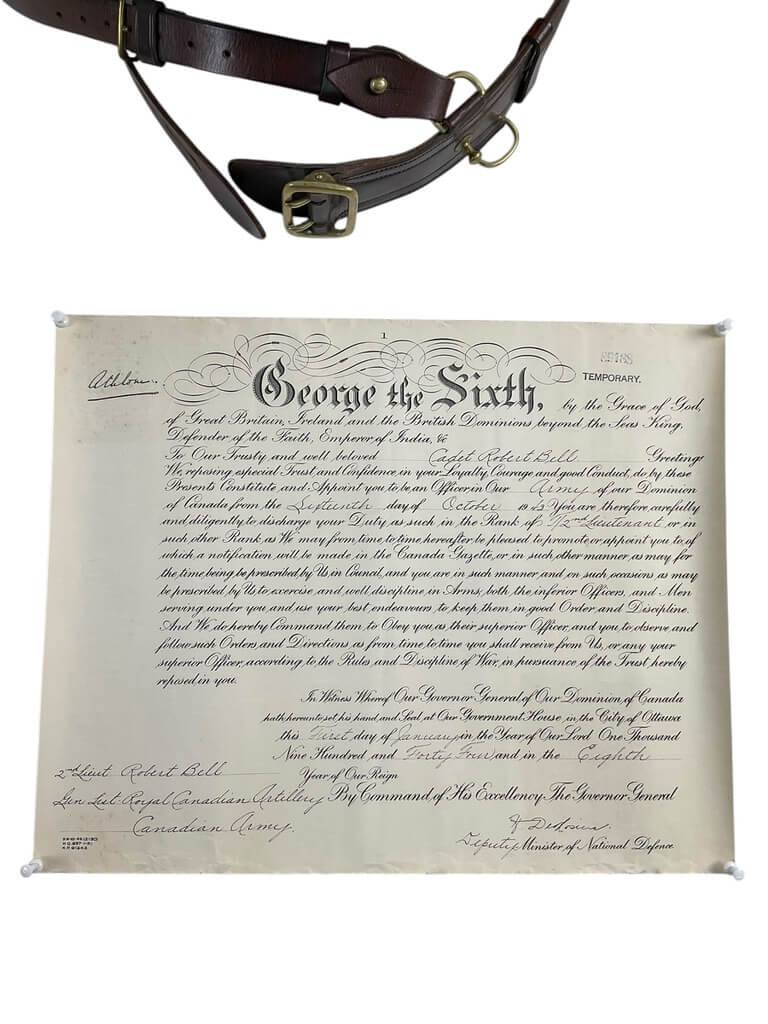 1
Athlone.
TEMPORARY.
George the Sixth, by the Grace of God,
of Great Britain, Ireland and the British Dominions beyond the Seas King,
Defender of the Faith, Emperor of India, &c
To Our Trusty and well beloved Cadet Robert Bell Greeting:
We, reposing especial Trust and Confidence in your Loyalty, Courage and good Conduct, do by these
Presents Constitute and Appoint you to be an Officer in Our Army of our Dominion
of Canada from the Sixteenth day of October 1943 You are therefore carefully
and diligently to discharge your Duty as such in the Rank of 2nd Lieutenant or in
such other Rank as We may from time to time hereafter be pleased to promote or appoint you to, of
which a notification will be made in the Canada Gazette, or in such other manner as may for
the time being be prescribed by Us in Council, and you are in such manner and on such occasions as may
be prescribed by Us to exercise and well discipline in Arms, both the inferior Officers, and Men
serving under you and use your best endeavours to keep them in good Order and Discipline.
And We do hereby Command them to Obey you as their superior Officer, and you to observe and
follow such Orders and Directions as from time to time you shall receive from Us, or any your
superior Officer, according to the Rules and Discipline of War, in pursuance of the Trust hereby
reposed in you.
In Witness Whereof Our Governor General of Our Dominion of Canada
hath hereunto set his hand and Seal at Our Government House in the City of Ottawa
this First day of January in the Year of Our Lord One Thousand
Nine Hundred and Forty Four and in the Eighth
Year of Our Reign
2nd Lieut Robert Bell
Gen List Royal Canadian Artillery
Canadian Army.
By Command of His Excellency The Governor General
Deputy Minister of National Defence